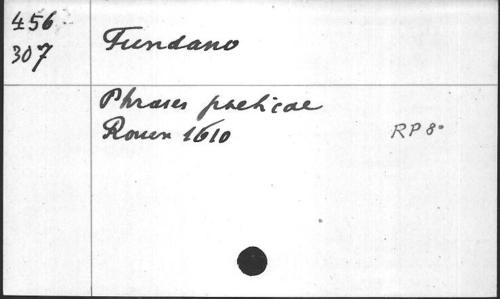 456
307
Fundano
Phrases poeticae
Rouen 1610
RP 8°